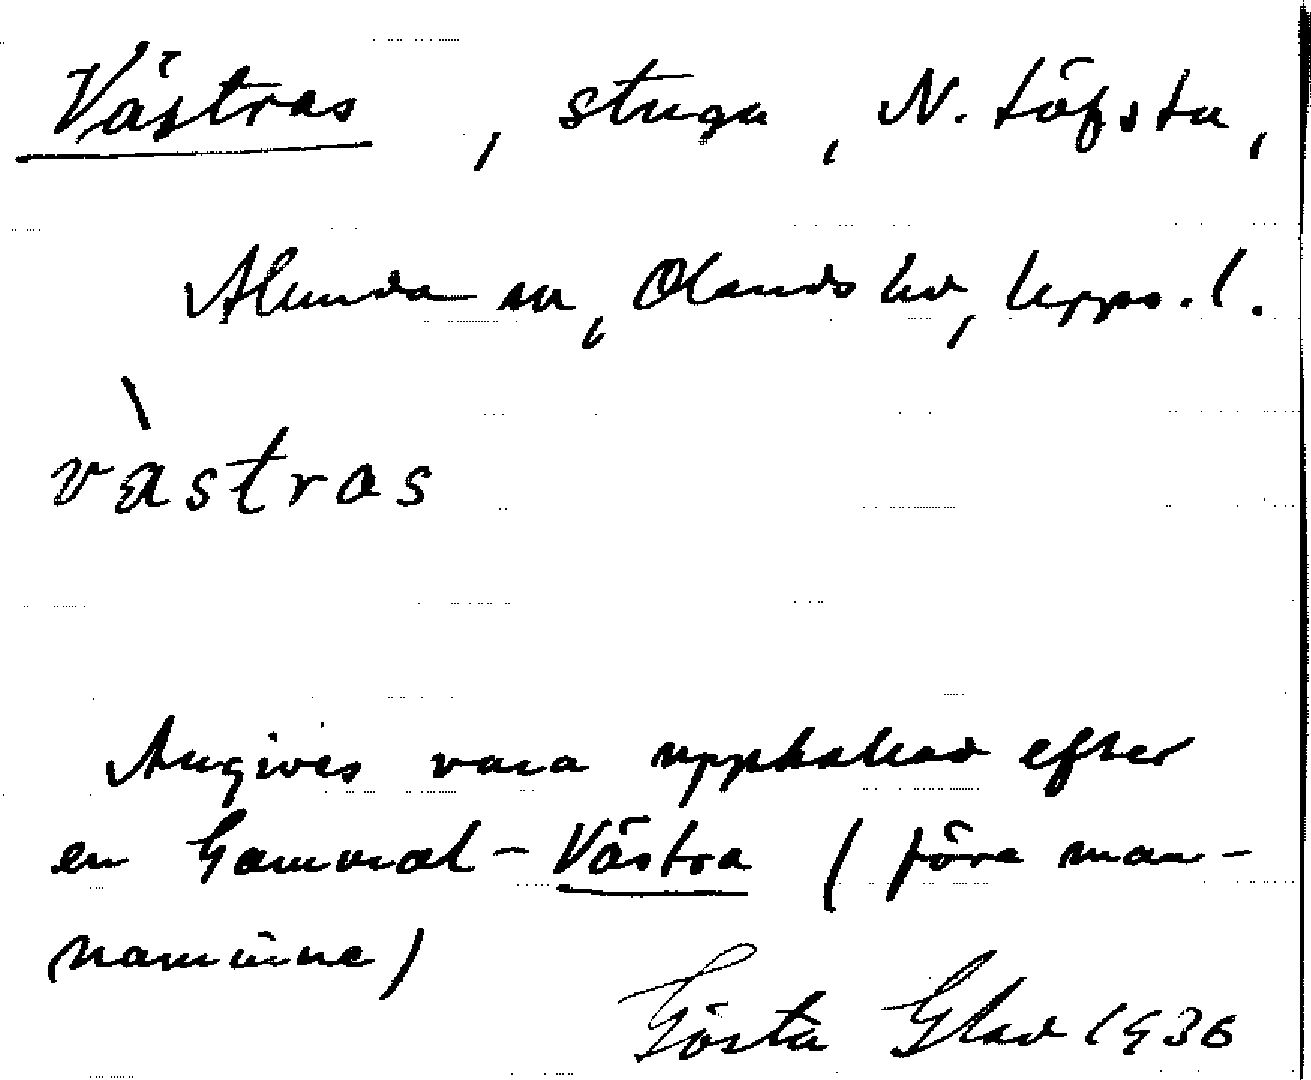 Västras, stuga, N. Löfsta,
Alunda sn, Olands hd, Upps. l.
v̀astras
Angives vara uppkallad efter
en Gammal-Västra (före man-
naminne)
Gösta Glad 1936